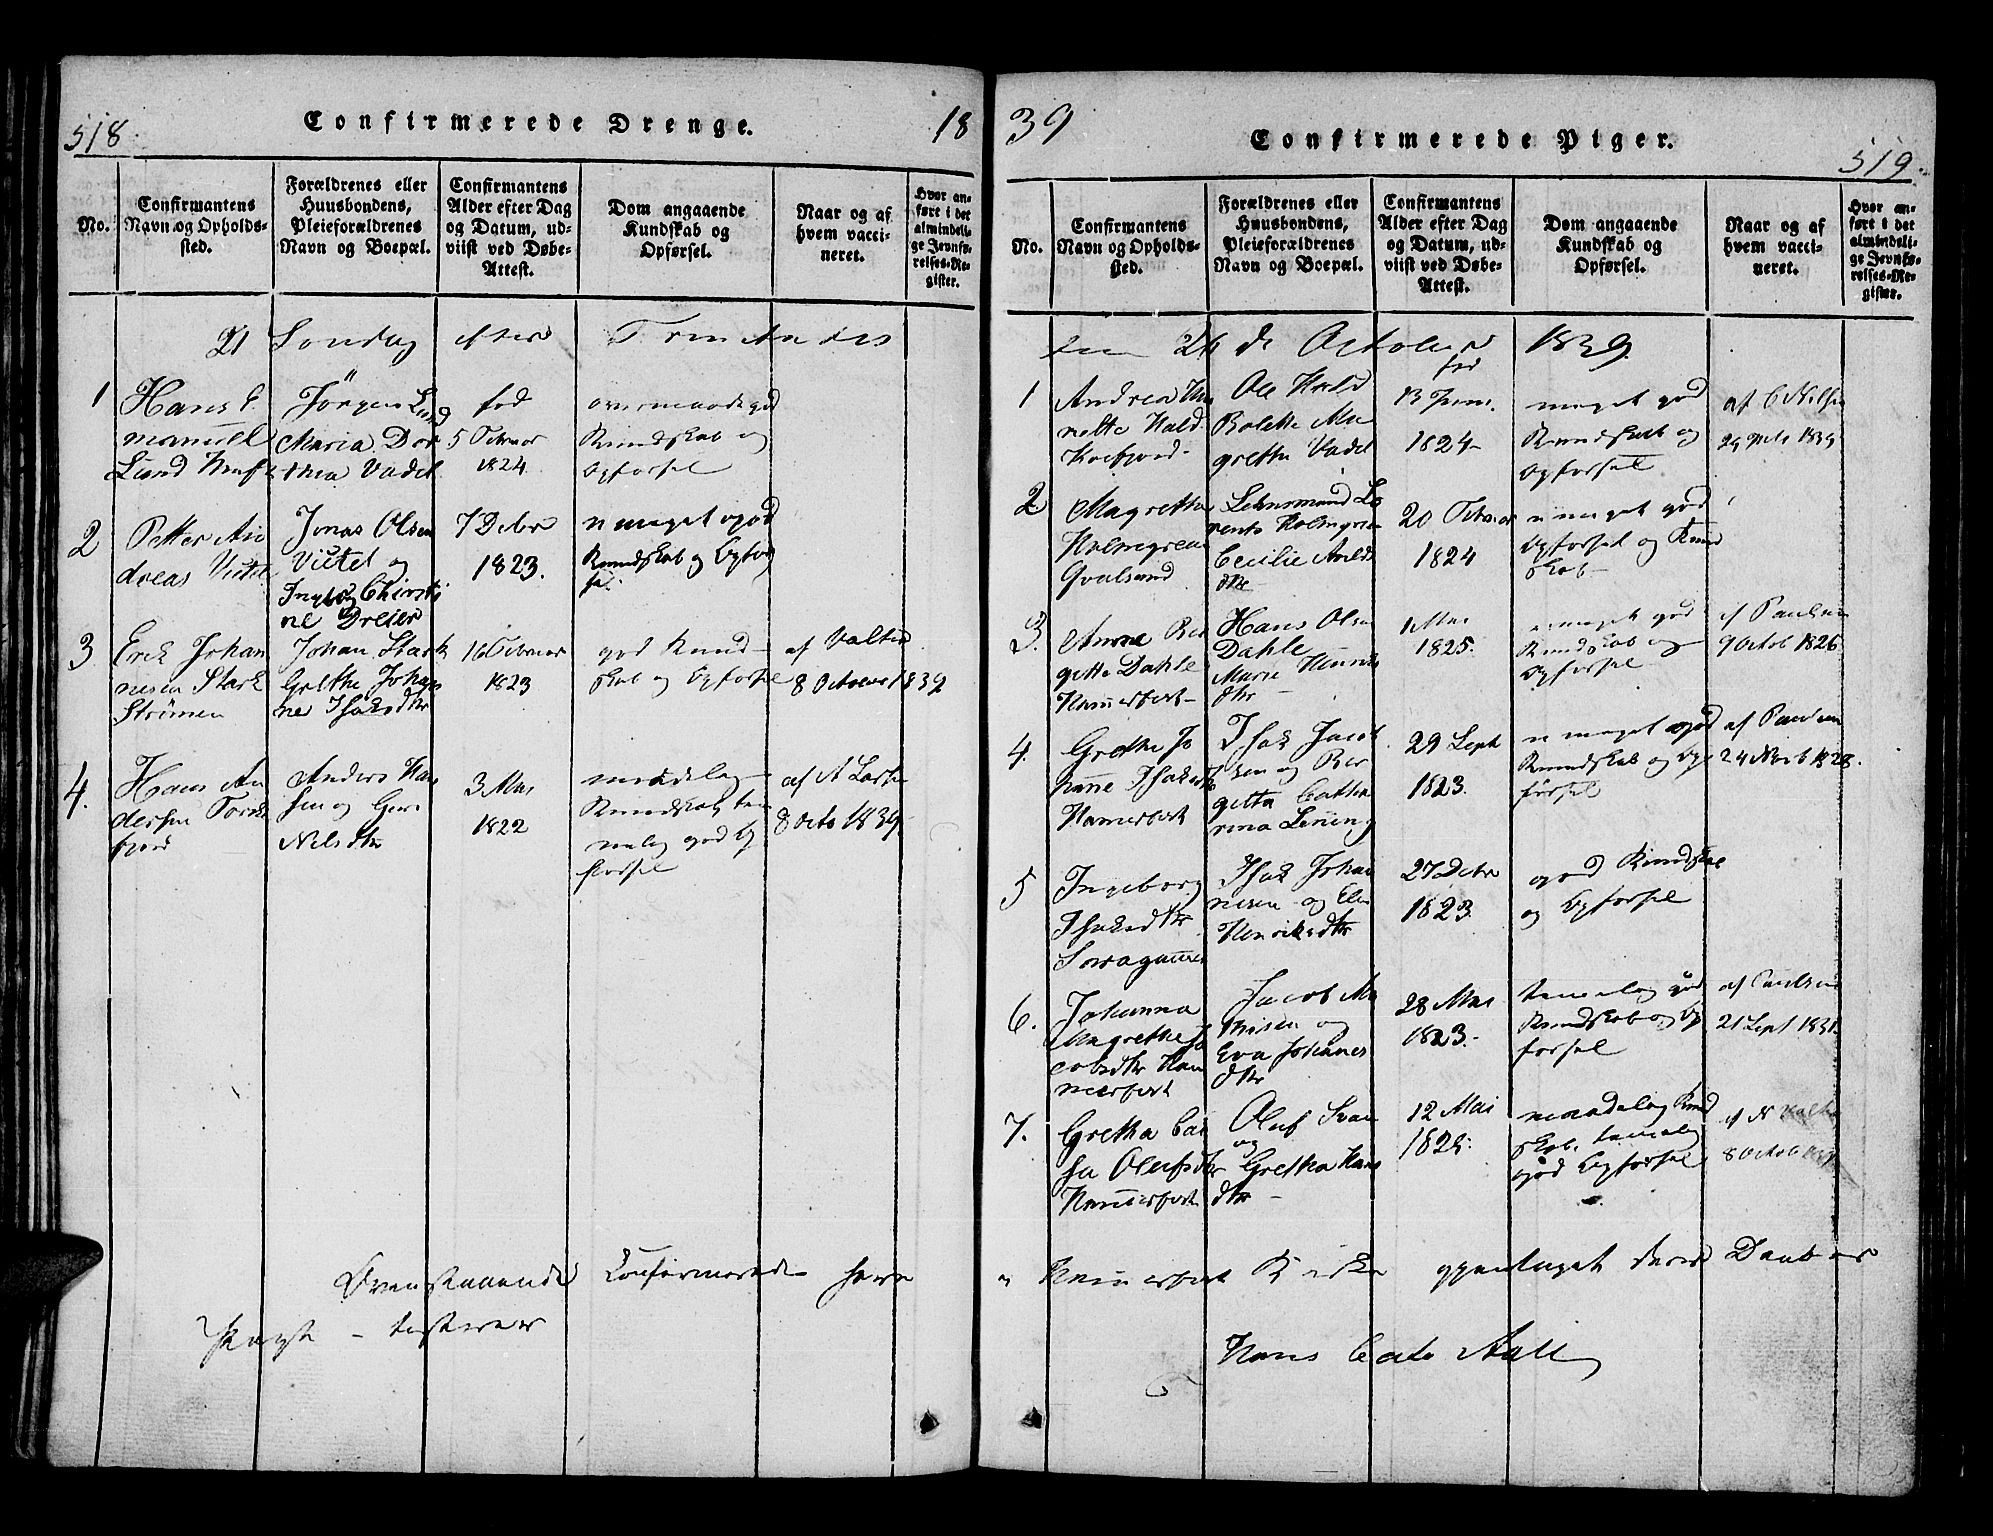 518.
Confirmerede Drenge.
18
No.
Confirmantens
Navn og Opholds-
sted.
Forældrenes eller
Huusbondens,
Pleieforældrenes
Navn og Boepæl.
Confirmantens
Alder efter Dag
og Datum, ud-
viist ved Døbe-
Attest.
Dom angaaende
Kundskab og
Opførsel.
Naar og af
hvem vacci-
neret.
Hvor an-
ført i det
almindeli-
ge Jevnfø-
relses-Re-
gister.
21 Søndag efter Trinitatis
1
Hans E
manuel
Lund
Jörgen Lund
Maria Dor
thea Vadel
fød
5 Februar
1824.
overmaade god
Kundskab og
Opførsel
2
Petter An
dreas
Jonas Olsen
og
Ingeb Christi
ne Dreier
7 Debr
1823.
meget god
Kundskab og Opfør
sel.
3
Erik Johan
nesen Stark
Strömen
Johan Stark
Grethe Johan
ne Isaksdtr
16 Februar
1823
god Kund-
skab og Opførsel
af
8 October 1839
4.
Hans An
dersen
fjord
Anders Han
sen og
Nilsdtr
3 Mai
1822
maadelig
Kundskab, tem
melig god Op
førsel
af A Larsen
8 Octo 1839
Ovenstaaende Confirmerede have
39
Confirmerede Piger.
519.
No.
Confirmantens
Navn og Opholds-
sted.
Forældrenes eller
Huusbondens,
Pleieforældrenes
Navn og Boepæl.
Confirmantens
Alder efter Dag
og Datum, ud-
viist ved Døbe-
Attest.
Dom angaaende
Kundskab og
Opførsel.
Naar og af
hvem vacci-
neret.
Hvor an-
ført i det
almindeli-
ge Jevnfø-
relses-Re-
gister.
den de October 1839.
1
Andrea
nette Hald
Ole Hald
Bolette Ma
grethe Vadel
fød
13 Juni
1824-
meget god
Kundskab og
Opførsel
af C Nilsen
1839
2
Magrethe
Holmgren
Qvalsund
Lehnsmand
Holmgren
Cecilie
dtr
20 Februar
1824
meget god
Opførsel og Kund
skab-
3.
Anne Ber
gitte Dahle
Hamerfest-
Hans Olsen
Dahle
Marie Henriks
dtr
1 Mai
1825.
meget god
Kundskab og
Opførsel
af Paulsen
9 Octob 1826
4.
Grethe Jo
hanne Isaksdtr
Hamerfest
Isak Jacob
sen og Ber
gitta Catha
rina
29 Sept
1823.
meget god
Kundskab og Op
førsel
af Paulsen
24 1828.
5
Ingeborg
Isaksdtr
Isak Johan
nesen og Elen
Henriksdtr
27 Debr
1823.
god Kundskab
og Opførsel
6.
Johanna
Magrethe Ja
cobsdtr Ham
merfest
Jacob Ma
thisen og
Eva Johannes
dtr
28 Mai
1823.
temelig god
Kundskab og Op
førsel
af Paulsen
21 Sept 1831.
7.
Gretha Cai
sa Olufsdtr
Hamerfest
Oluf Svan
og
Gretha Hans
dtr -
12 Mai
maadelig Kund
skab, temelig
god Opførsel
af N
8 Octob
Hamerfest Kirke deres Daabens
Pagt -
Hans Cato Aall